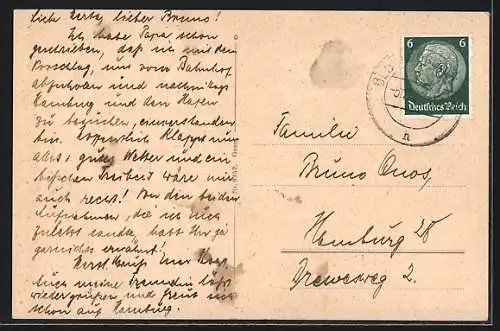 lieber Bruno!
Ich habe Papa schon
geschrieben, daß ich mit dem
Vorschlag, uns vom Bahnhof
abzuholen und nachmittags
Hamburg und den Hafen
zu besuchen, einverstanden
bin. Hoffentlich klappt nun
alles; gutes Wetter und ein
bißchen Freizeit wäre mir
auch recht! Von den beiden
Aufnahmen, die ich Euch
zuletzt sandte, habt Ihr ja
garnichts erwähnt!
Herzl. Euer
Auch meine Freundin läßt
wiedergrüßen und freut sich
schon auf Hamburg.
6 6
Deutsches Reich
n
Familie
Bruno
Hamburg 28
2.